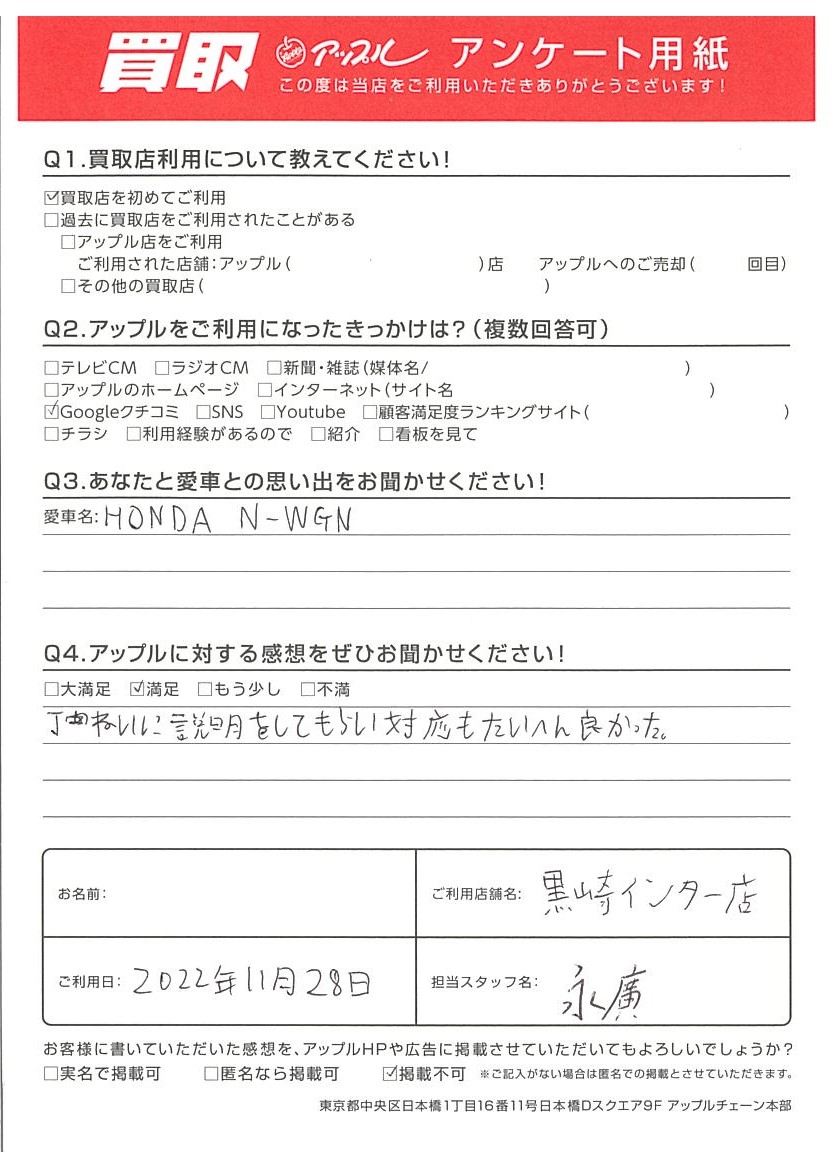 買取 アップル アンケート用紙
この度は当店をご利用いただきありがとうございます!
Q1.買取店利用について教えてください!
☑買取店を初めてご利用
□過去に買取店をご利用されたことがある
□アップル店をご利用
ご利用された店舗:アップル( )店 アップルへのご売却( 回目)
□その他の買取店( )
Q2.アップルをご利用になったきっかけは?(複数回答可)
□テレビCM □ラジオCM □新聞・雑誌(媒体名/ )
□アップルのホームページ □インターネット(サイト名 )
☑Googleクチコミ □SNS □Youtube □顧客満足度ランキングサイト( )
□チラシ □利用経験があるので □紹介 □看板を見て
Q3.あなたと愛車との思い出をお聞かせください!
愛車名:HONDA N-WGN
Q4.アップルに対する感想をぜひお聞かせください!
□大満足 ☑満足 □もう少し □不満
丁寧ねいに説明をしてもらい対応もたいへん良かった。
お名前:
ご利用店舗名: 黒崎インター店
ご利用日: 2022年11月28日
担当スタッフ名: 永廣
お客様に書いていただいた感想を、アップルHPや広告に掲載させていただいてもよろしいでしょうか?
□実名で掲載可 □匿名なら掲載可 ☑掲載不可 ※ご記入がない場合は匿名での掲載とさせていただきます。
東京都中央区日本橋1丁目16番11号日本橋Dスクエア9F アップルチェーン本部